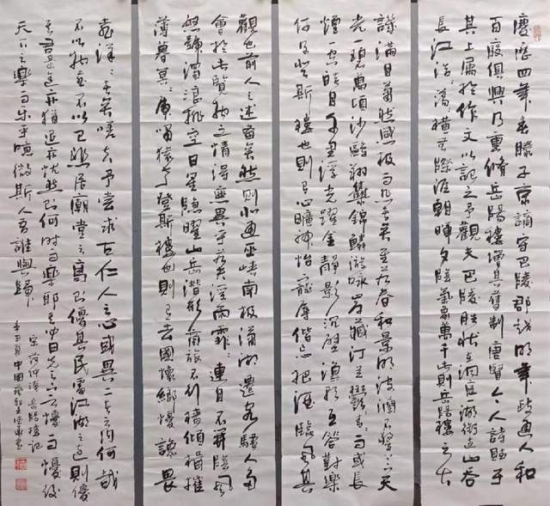 慶曆四年春滕子京謫守巴陵郡越明年政通人和
百廢俱興乃重修岳陽樓增其舊制唐賢今人詩賦于
其上屬於作文以記之予觀夫巴陵勝狀在洞庭湖銜遠山吞
長江浩浩湯湯橫無際涯朝暉夕陰氣象萬千此則岳陽樓之大
譏滿目蕭然感極而悲者矣至若春和景明波瀾不驚上下天
光一碧萬頃沙鷗翔集錦鱗游泳岸芷汀蘭鬱鬱青青而或長
煙一空皓月千里浮光躍金靜影沉璧漁歌互答此樂
何極登斯樓也則有心曠神怡寵辱偕忘把酒臨風其
觀也前人之述備矣然則北通巫峽南極瀟湘遷客騷人多
會於此覽物之情得無異乎若夫淫雨霏霏連月不開陰風
怒號濁浪排空日星隱曜山岳潛形商旅不行檣傾楫摧
薄暮冥冥虎嘯猿啼登斯樓也則有去國懷鄉憂讒畏
喜洋洋者矣嗟夫予嘗求古仁人之心或異二者之為何哉
不以物喜不以己悲居廟堂之高則憂其民處江湖之遠則憂
其君是進亦憂退亦憂然則何時而樂耶其必曰先天下之憂而憂後
天下之樂而樂乎噫微斯人吾誰與歸
宋范仲淹岳陽樓記